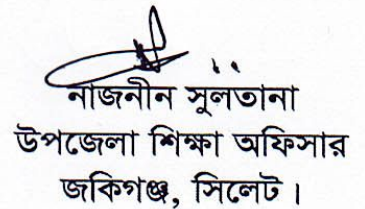 নাজনীন সুলতানা
উপজেলা শিক্ষা অফিসার
জকিগঞ্জ, সিলেট।